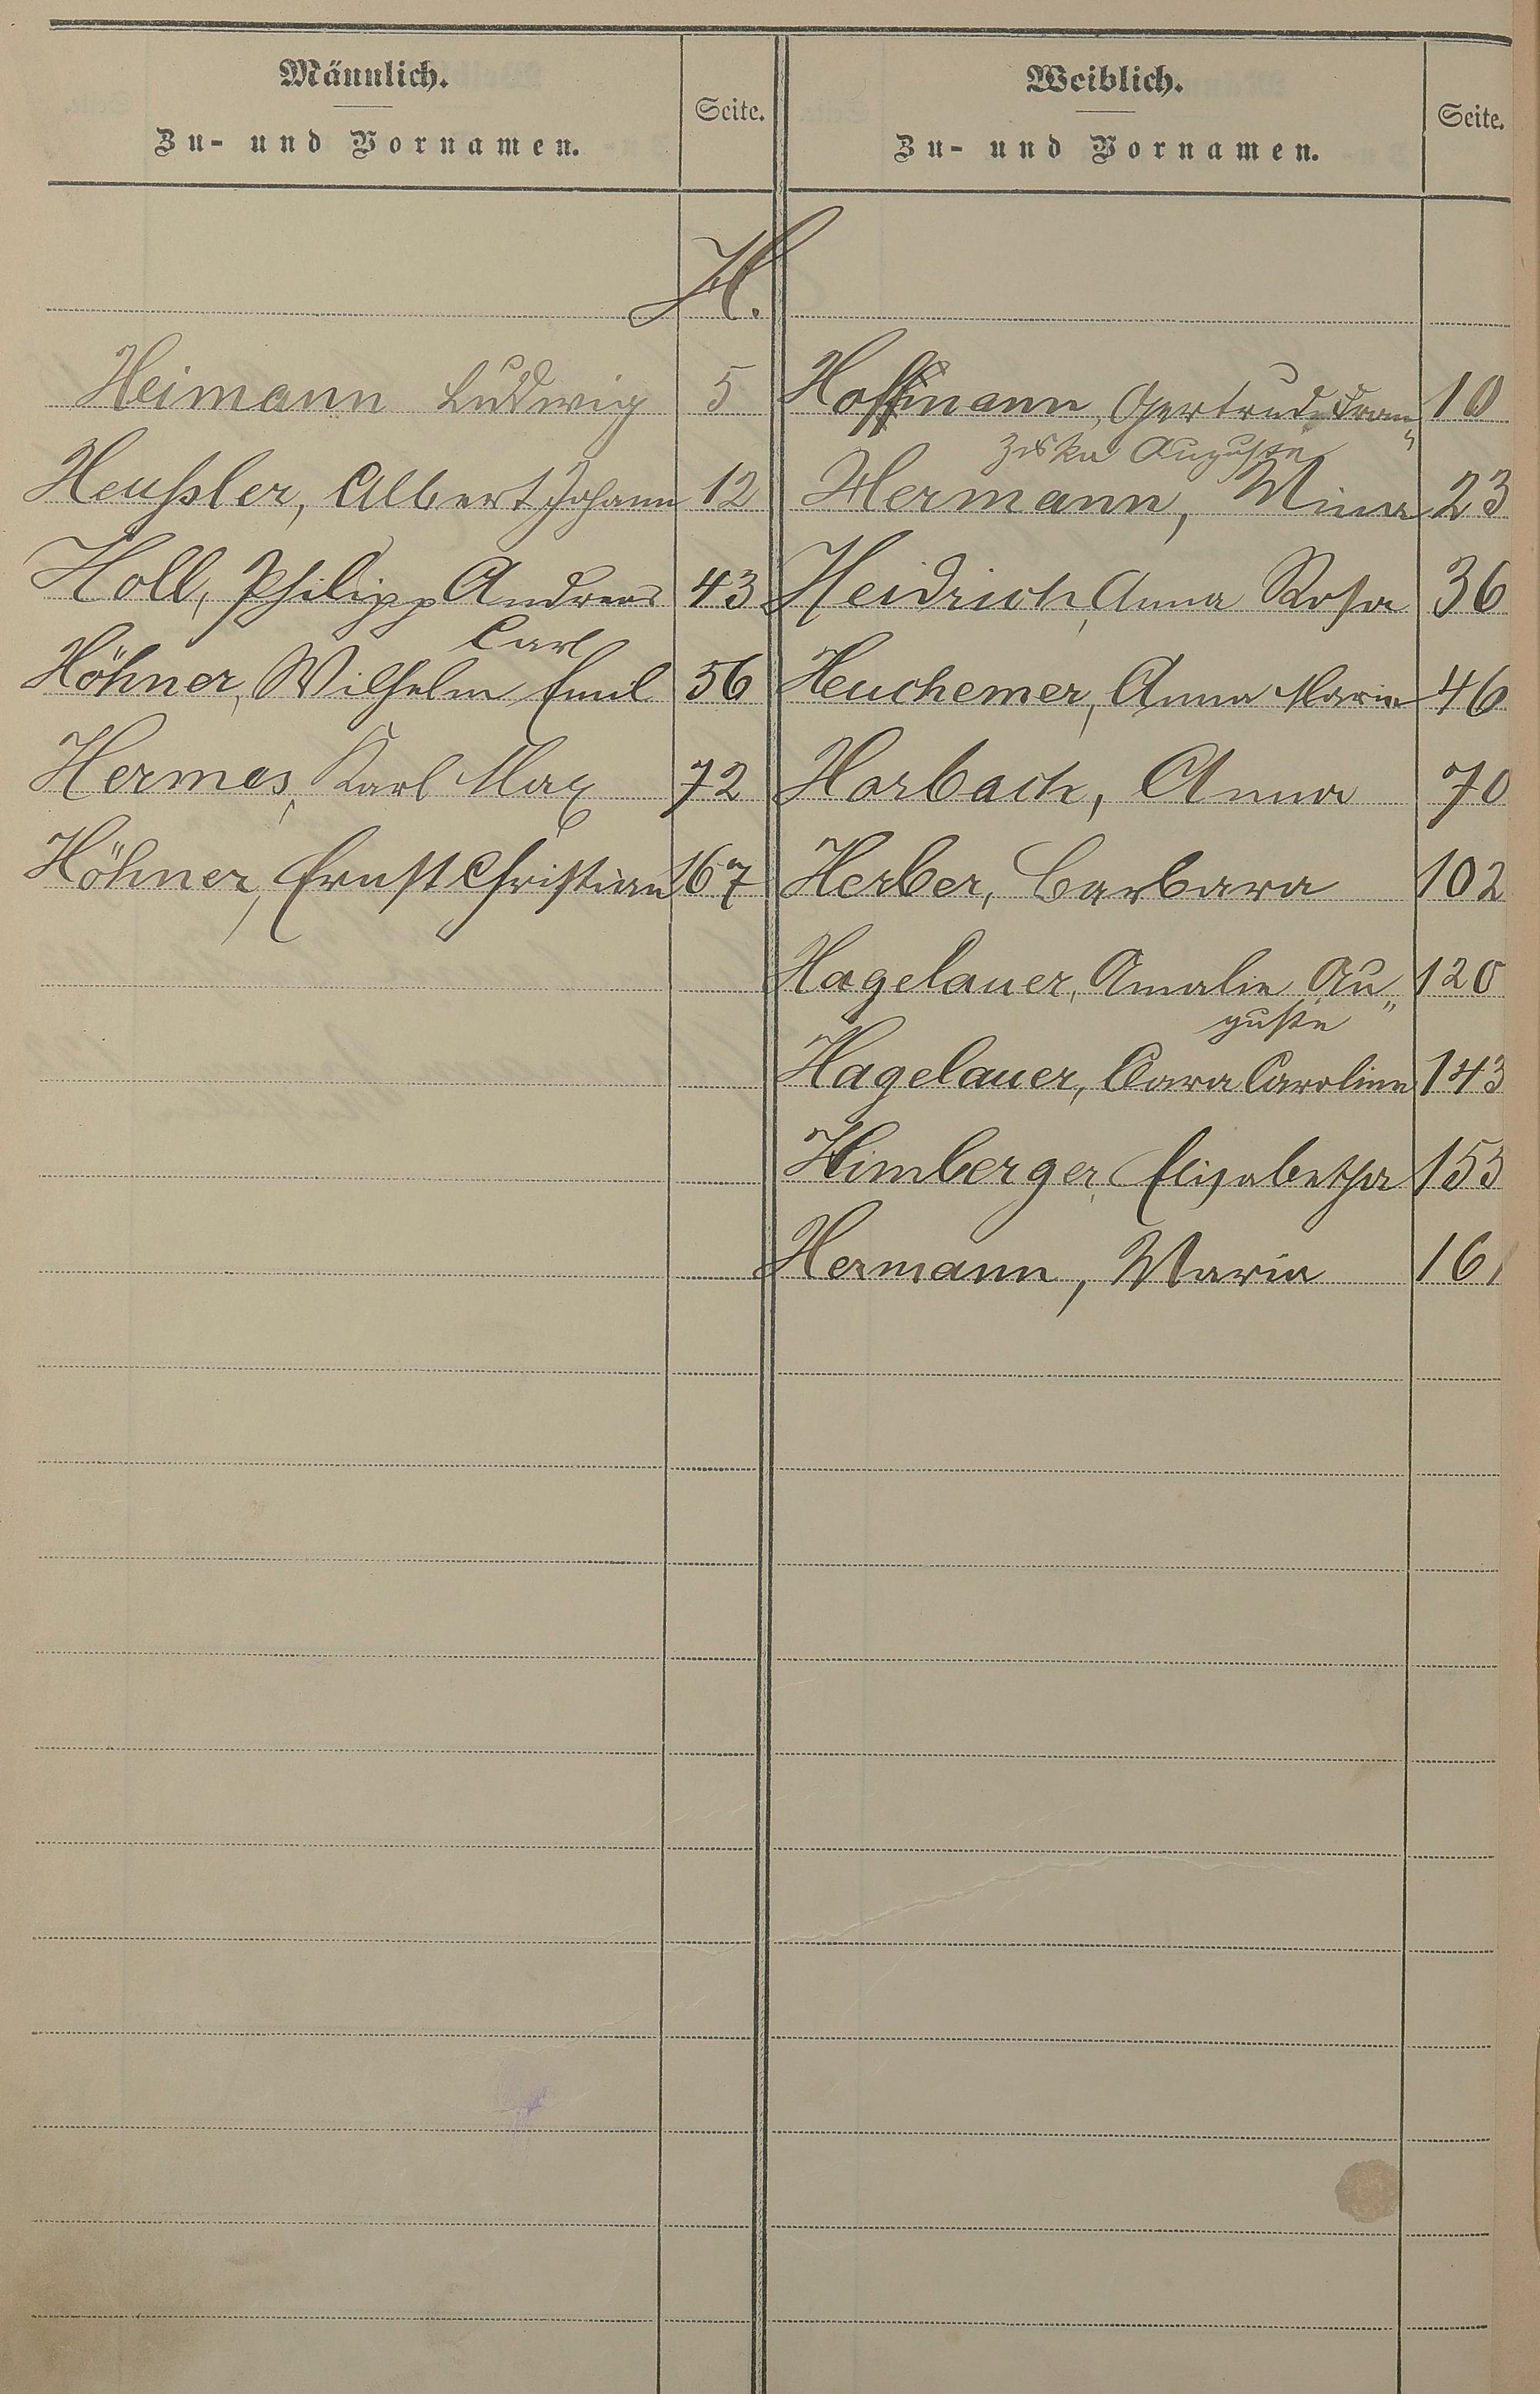 Männlich.
Zu- und Vornamen.
Seite.
Weiblich.
Zu- und Vornamen.
Seite.
H.
Heimann Ludwig 5
Heußler, Albert Johann 12
Holl, Philipp Andreas 43
Carl
Höhner, Wilhelm Emil 56
Hermes, Karl Max 72
Höhner, Ernst Christian 167
Hoffmann, Gertrude Fran„ 10
ziska Auguste
Hermann, Mina 23
Heidrich, Anna Rosa 36
Heuchemer, Anna Maria 46
Horbach, Anna 70
Herber, Barbara 102
Hagelauer, Amalie Au„ 120
guste
Hagelauer, Clara Caroline 143
Himberger, Elisabetha 153
Hermann, Maria 161